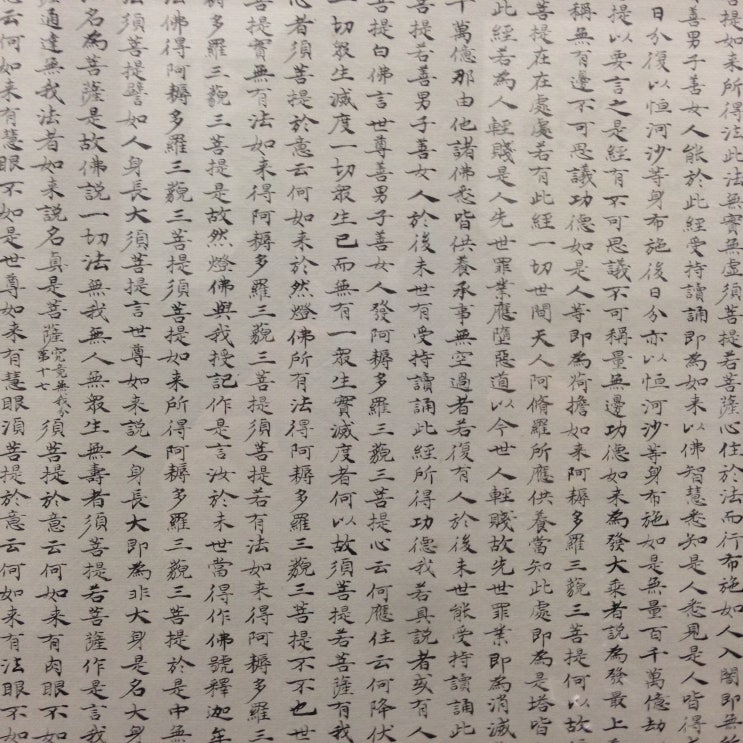 提如来所得法此法無實無虛須菩提若菩薩心住於法而行布施如人入闇即無所
善男子善女人能於此經受持讀誦即為如来以佛智慧悉知是人悉見是人皆得
日分復以恒河沙等身布施後日分亦以恒河沙等身布施如是無量百千萬億劫
提以要言之是經有不可思議不可稱量無邊功德如来為發大乘者說為發最上
稱無有邊不可思議功德如是人等即為荷擔如来阿耨多羅三藐三菩提何以故
菩提在在處處若有此經一切世間天人阿脩羅所應供養當知此處即為是塔皆
此經若為人輕賤是人先世罪業應墮惡道以今世人輕賤故先世罪業即為消滅
千萬億那由他諸佛悉皆供養承事無空過者若復有人於後末世能受持讀誦此
菩提若善男子善女人於後末世有受持讀誦此經所得功德我若具說者或有人
菩提白佛言世尊善男子善女人發阿耨多羅三藐三菩提心云何應住云何降伏
一切眾生滅度一切眾生已而無有一眾生實滅度者何以故須菩提若菩薩有我
心者須菩提於意云何如来於然燈佛所有法得阿耨多羅三藐三菩提不不也世
菩提實無有法如来得阿耨多羅三藐三菩提須菩提若有法如来得阿耨多羅三
耨多羅三藐三菩提是故然燈佛與我授記作是言汝於未世當得作佛號釋迦牟
法佛得阿耨多羅三藐三菩提須菩提如来所得阿耨多羅三藐三菩提於是中無
法須菩提譬如人身長大須菩提言世尊如来說人身長大即為非大身是名大身
名為菩薩是故佛說一切法無我無人無眾生無壽者須菩提若菩薩作是言我
通達無我法者如来說名真是菩薩究竟無我分第十七須菩提於意云何如来有肉眼不如
云何如来有慧眼不如是世尊如来有慧眼須菩提於意云何如来有法眼不如